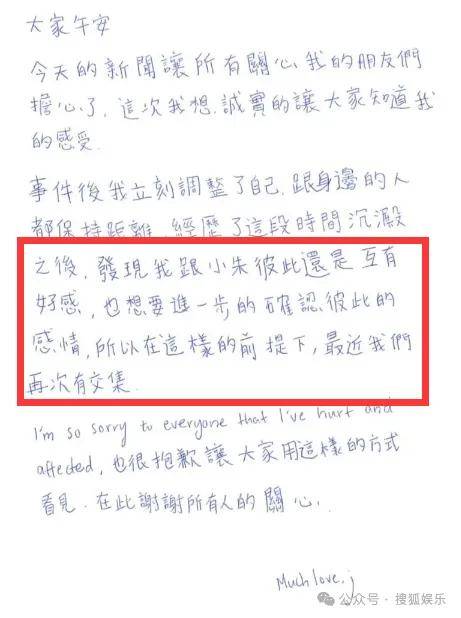 大家午安
今天的新聞讓所有關心我的朋友們
擔心了，這次我想誠實的讓大家知道我
的感受.
事件後我立刻調整了自己，跟身邊的人
都保持距離，經歷了這段時間沉澱
之後，發現我跟小朱彼此還是互有
好感，也想要進一步的確認彼此的
感情，所以在這樣的前提下，最近我們
再次有交集.
I'm so sorry to everyone that I've hurt and
affected，也很抱歉讓大家用這樣的方式
看見．在此謝謝所有人的關心.
Much love. j
公众号 · 搜狐娱乐